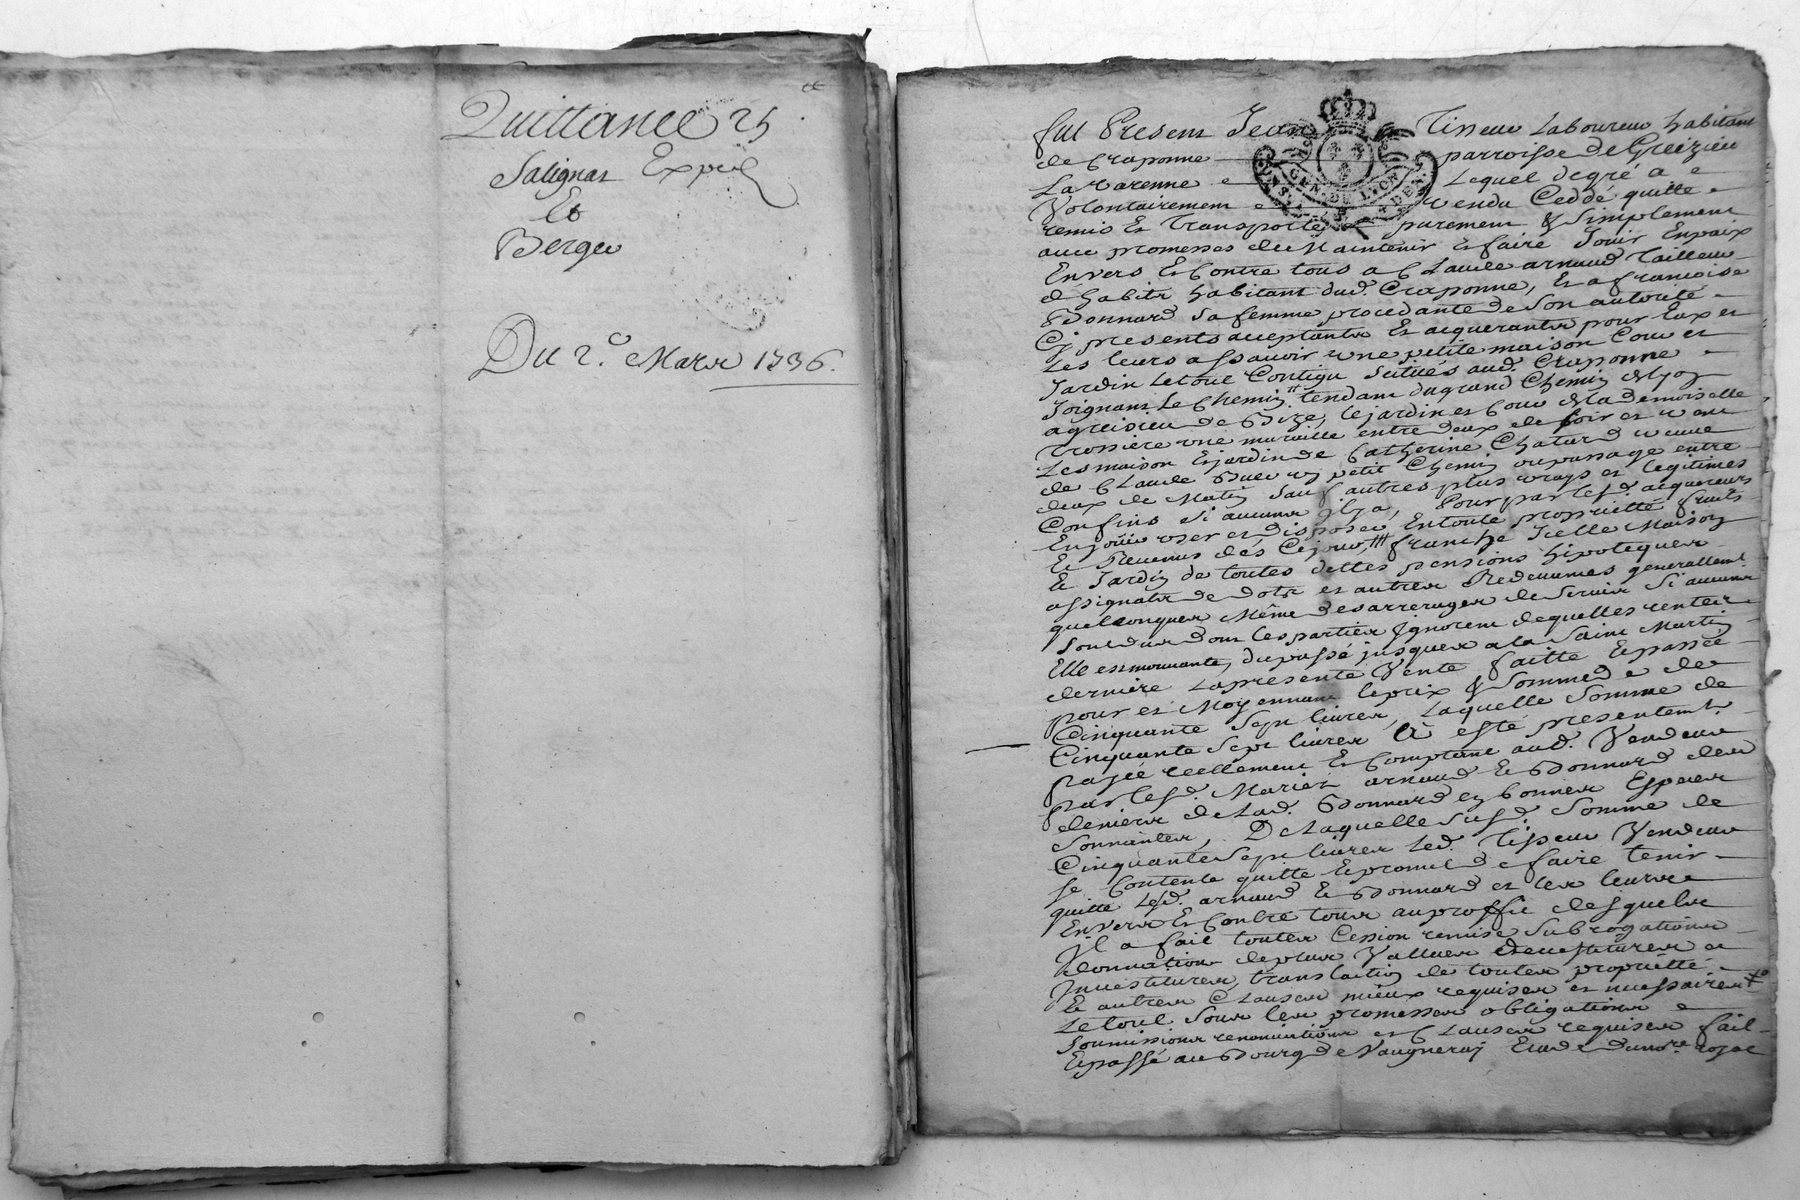 Quittance 25
Salignat Expéd
Et
Berger
Du 2.e Mars 1736.
fut Present Jean Tisseur Laboureur habitant
de Craponne parroisse de Greizieu
La varenne Lequel de gré a
Volontairement vendu Ceddé quitté
remis Et Transporté purement & Simplement
avec promesses de Maintenir & faire Jouir En paix
Envers Et Contre tous a Claude arnaud Tailleur
d'habits habitant dud. Craponne, Et a francoise
Bonnard sa femme procedante de Son autorité
Cy presents acceptants Et acquerants pour Eux et
Les leurs assavoir une petite maison Cour et
Jardin Le tout Contigu Scitués aud. Craponne
Joignant Le Chemin tendant du grand Chemin
a greisieu de Bize, le jardin et Cour de la demoiselle
une muraille entre deux de soir et vent
Les maison Et jardin de Catherine Chatard veuve
de Claude un petit Chemin ou passage entre
deux de Matin Sauf autres plus vrays et legitimes
Confins si aucuns Il y a, Pour par lesd. acquereurs
En jouir user et disposer En toute proprietté fruits
Et Revenus dés Cejourd'huy franche Icelle Maison
Et Jardin de toutes dettes pensions hipoteques
assignats de dots et autres Redevances generallemt.
quelconques Même des arrerages de Servis Si aucuns
Sont dus dont les parties Ignorent de quelles rentes
Elle est mouvante, du passé jusques a la Saint Martin
derniere La presente Vente faitte Et passée
pour et Moyennant le prix & Somme de
Cinquante Sept livres, Laquelle Somme de
Cinquante Sept livres A esté presentemt.
payée reellement Et Comptant aud. Vendeur
par lesd. Mariés arnaud Et Bonnard des
deniers de Lad. Bonnard en bonnes Especes
Sonnantes, De laquelle susd. Somme de
Cinquante Sept livres Led. Tisseur Vendeur
se Contente quitte Et promet de faire tenir
quitte Lesd. arnaud Et Bonnard et les leurs
Envers Et Contre tous au proffit desquels
Il a fait toutes Cession remise Subrogations
donnation de plus Vallues devestitures
Investitures, translation de toutes proprietté
Et autres Clauses mieux requises et necessaires
Le tout Sous les promesses obligations
Soumissions renonciations et Clauses requises fait
Et passé au Bourg de Vaugneray Etude du nore. royal